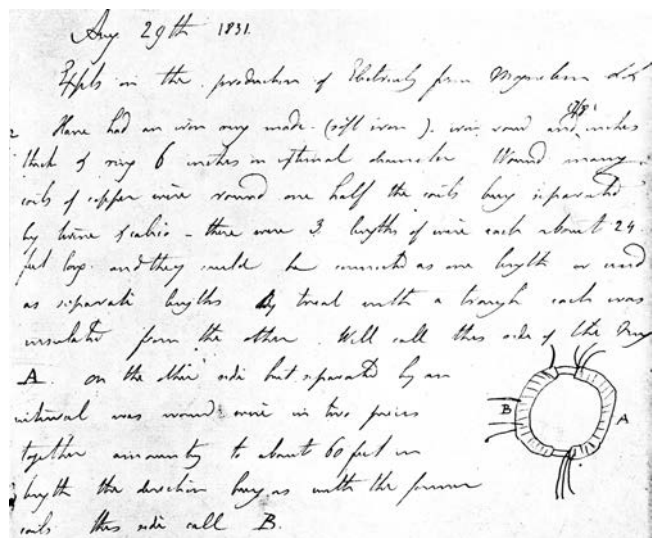 Aug 29th 1831.
Expts on the production of Electricity from Magnetism &c &c
2 Have had an iron ring made (soft iron). iron round and 7/8 inches
thick & ring 6 inches in external diameter Wound many
coils of copper wire round one half the coils being separated
by twine & calico - there were 3 lengths of wire each about 24
feet long and they could be connected as one length or used
as separate lengths By trial with a trough each was
insulated from the other. Will call this side of the ring
A. on the other side but separated by an
interval was wound wire in two pieces
together amounting to about 60 feet in
length the direction being as with the former
coils this side call B.
B A